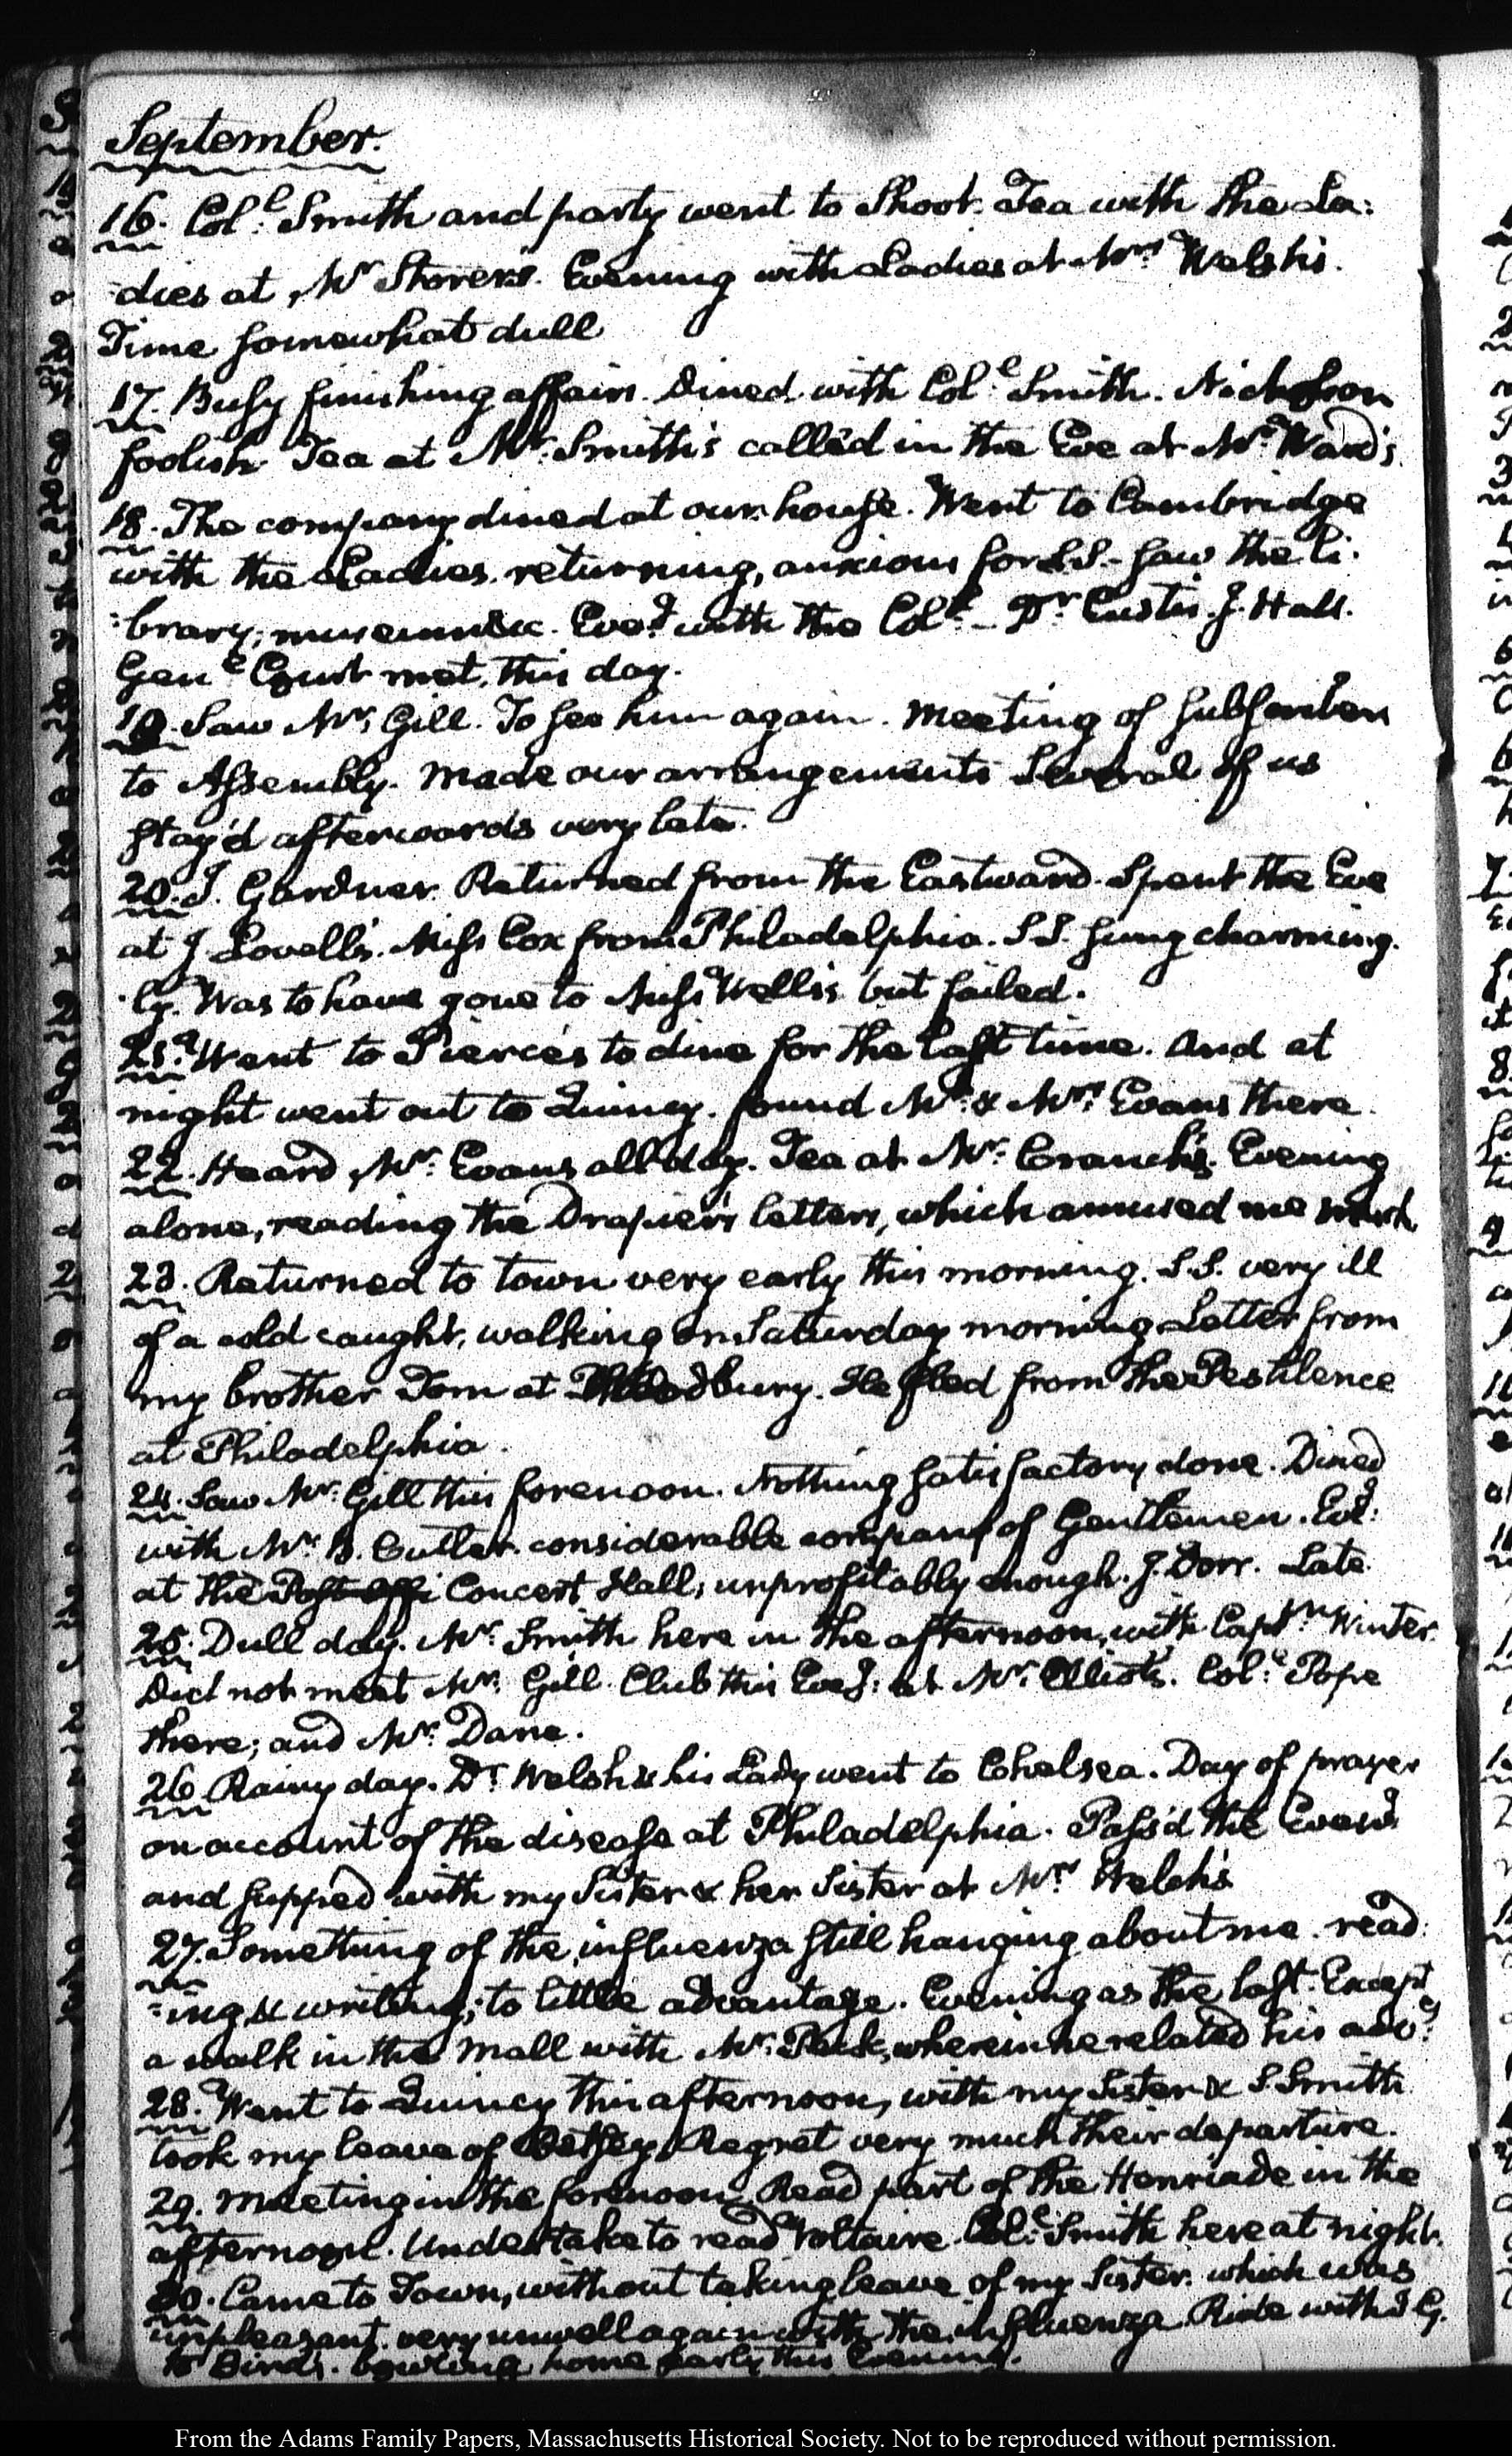 September.
16. Col.l Smith and party went to Shoot. Tea with the La:
dies at Mr Storer's. Evening with Ladies at Mrs. Welsh's.
Time somewhat dull
17. Busy finishing affairs. Dined with Col.l Smith. Nicholson
foolish. Tea at Mr. Smith's called in the Eve at Mr. Ward's.
18. The company dined at our house. Went to Cambridge
with the Ladies. returning, anxious for S.S. saw the li:
:brary, museum &c. Eve.g with the Col.l - Dr. Custis. J. Hall.
Gen.l Court met, this day.
19. Saw Mr. Gill. To see him again. Meeting of subscribers
to Assembly. Made our arrangements Several of us
stay'd afterwards very late.
20. J. Gardner. Returned from the Eastward. Spent the Eve
at J. Lovell's. Miss Cox from Philadelphia. S.S. sung charming.
ly. Was to have gone to Miss Wells's but failed.
21. Went to Pierce's to dine for the last time. And at
night went out to Quincy. found Mr. & Mrs. Evans there.
22. Heard Mr. Evans all day. Tea at Mr. Cranch's. Evening
alone, reading the Drapier's letters, which amused me much.
23. Returned to town very early this morning. S.S. very ill
of a cold caught, walking on Saturday morning Letter from
my brother Tom at Woodbury. He fled from the Pestilence
at Philadelphia.
24. Saw Mr. Gill this forenoon. Nothing satisfactory done. Dined
with Mr. B. Cutler. considerable company of Gentlemen. Eve.g
at the Post offi Concert Hall, unprofitably enough. J. Dorr. Late.
25. Dull day. Mr. Smith here in the afternoon, with Captn. Winter.
Did not meet Mr. Gill. Club this Eve.g at Mr. Elliot's. Col.l Pope
there; and Mr. Dane.
26 Rainy day. Dr. Welsh & his Lady went to Chelsea. Day of prayer
on account of the disease at Philadelphia. Pass'd the Even.g
and supped with my Sister & her Sister at Mrs. Welsh's
27. Something of the influenza still hanging about me. read:
:ing & writing; to little advantage. Evening as the last. Except
a walk in the Mall with Mr. Peck, wherein he related his adv.s
28. Went to Quincy this afternoon, with my Sister & S. Smith
took my leave of Betsey. Regret very much their departure.
29. Meeting in the forenoon. Read part of the Henriade in the
afternoon. Undertake to read Voltaire. Col.l Smith here at night.
30. Came to Town, without taking leave of my Sister. which was
unpleasant. very unwell again with the influenza. Ride with J.G.
to Bird's. bowling home early this Evening.
From the Adams Family Papers, Massachusetts Historical Society. Not to be reproduced without permission.